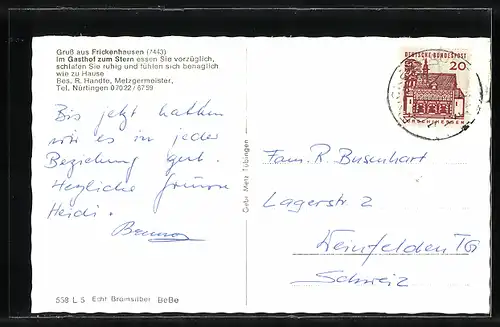 Gruß aus Frickenhausen (7443)
Im Gasthof zum Stern essen Sie vorzüglich,
schlafen Sie ruhig und fühlen sich behaglich
wie zu Hause
Bes. R. Handte, Metzgermeister,
Tel. Nürtingen 07022/6759
Bis jetzt hatten
wir es in jeder
Beziehung gut.
Herzliche Grüsse
Heidi.
558 L 5 Echt Bromsilber BeBe
Gebr. Metz Tübingen
DEUTSCHE BUNDESPOST
20
LORSCH/HESSEN
Fam. R. Busenhart
Lagerstr. 2
Weinfelden TG
Schweiz